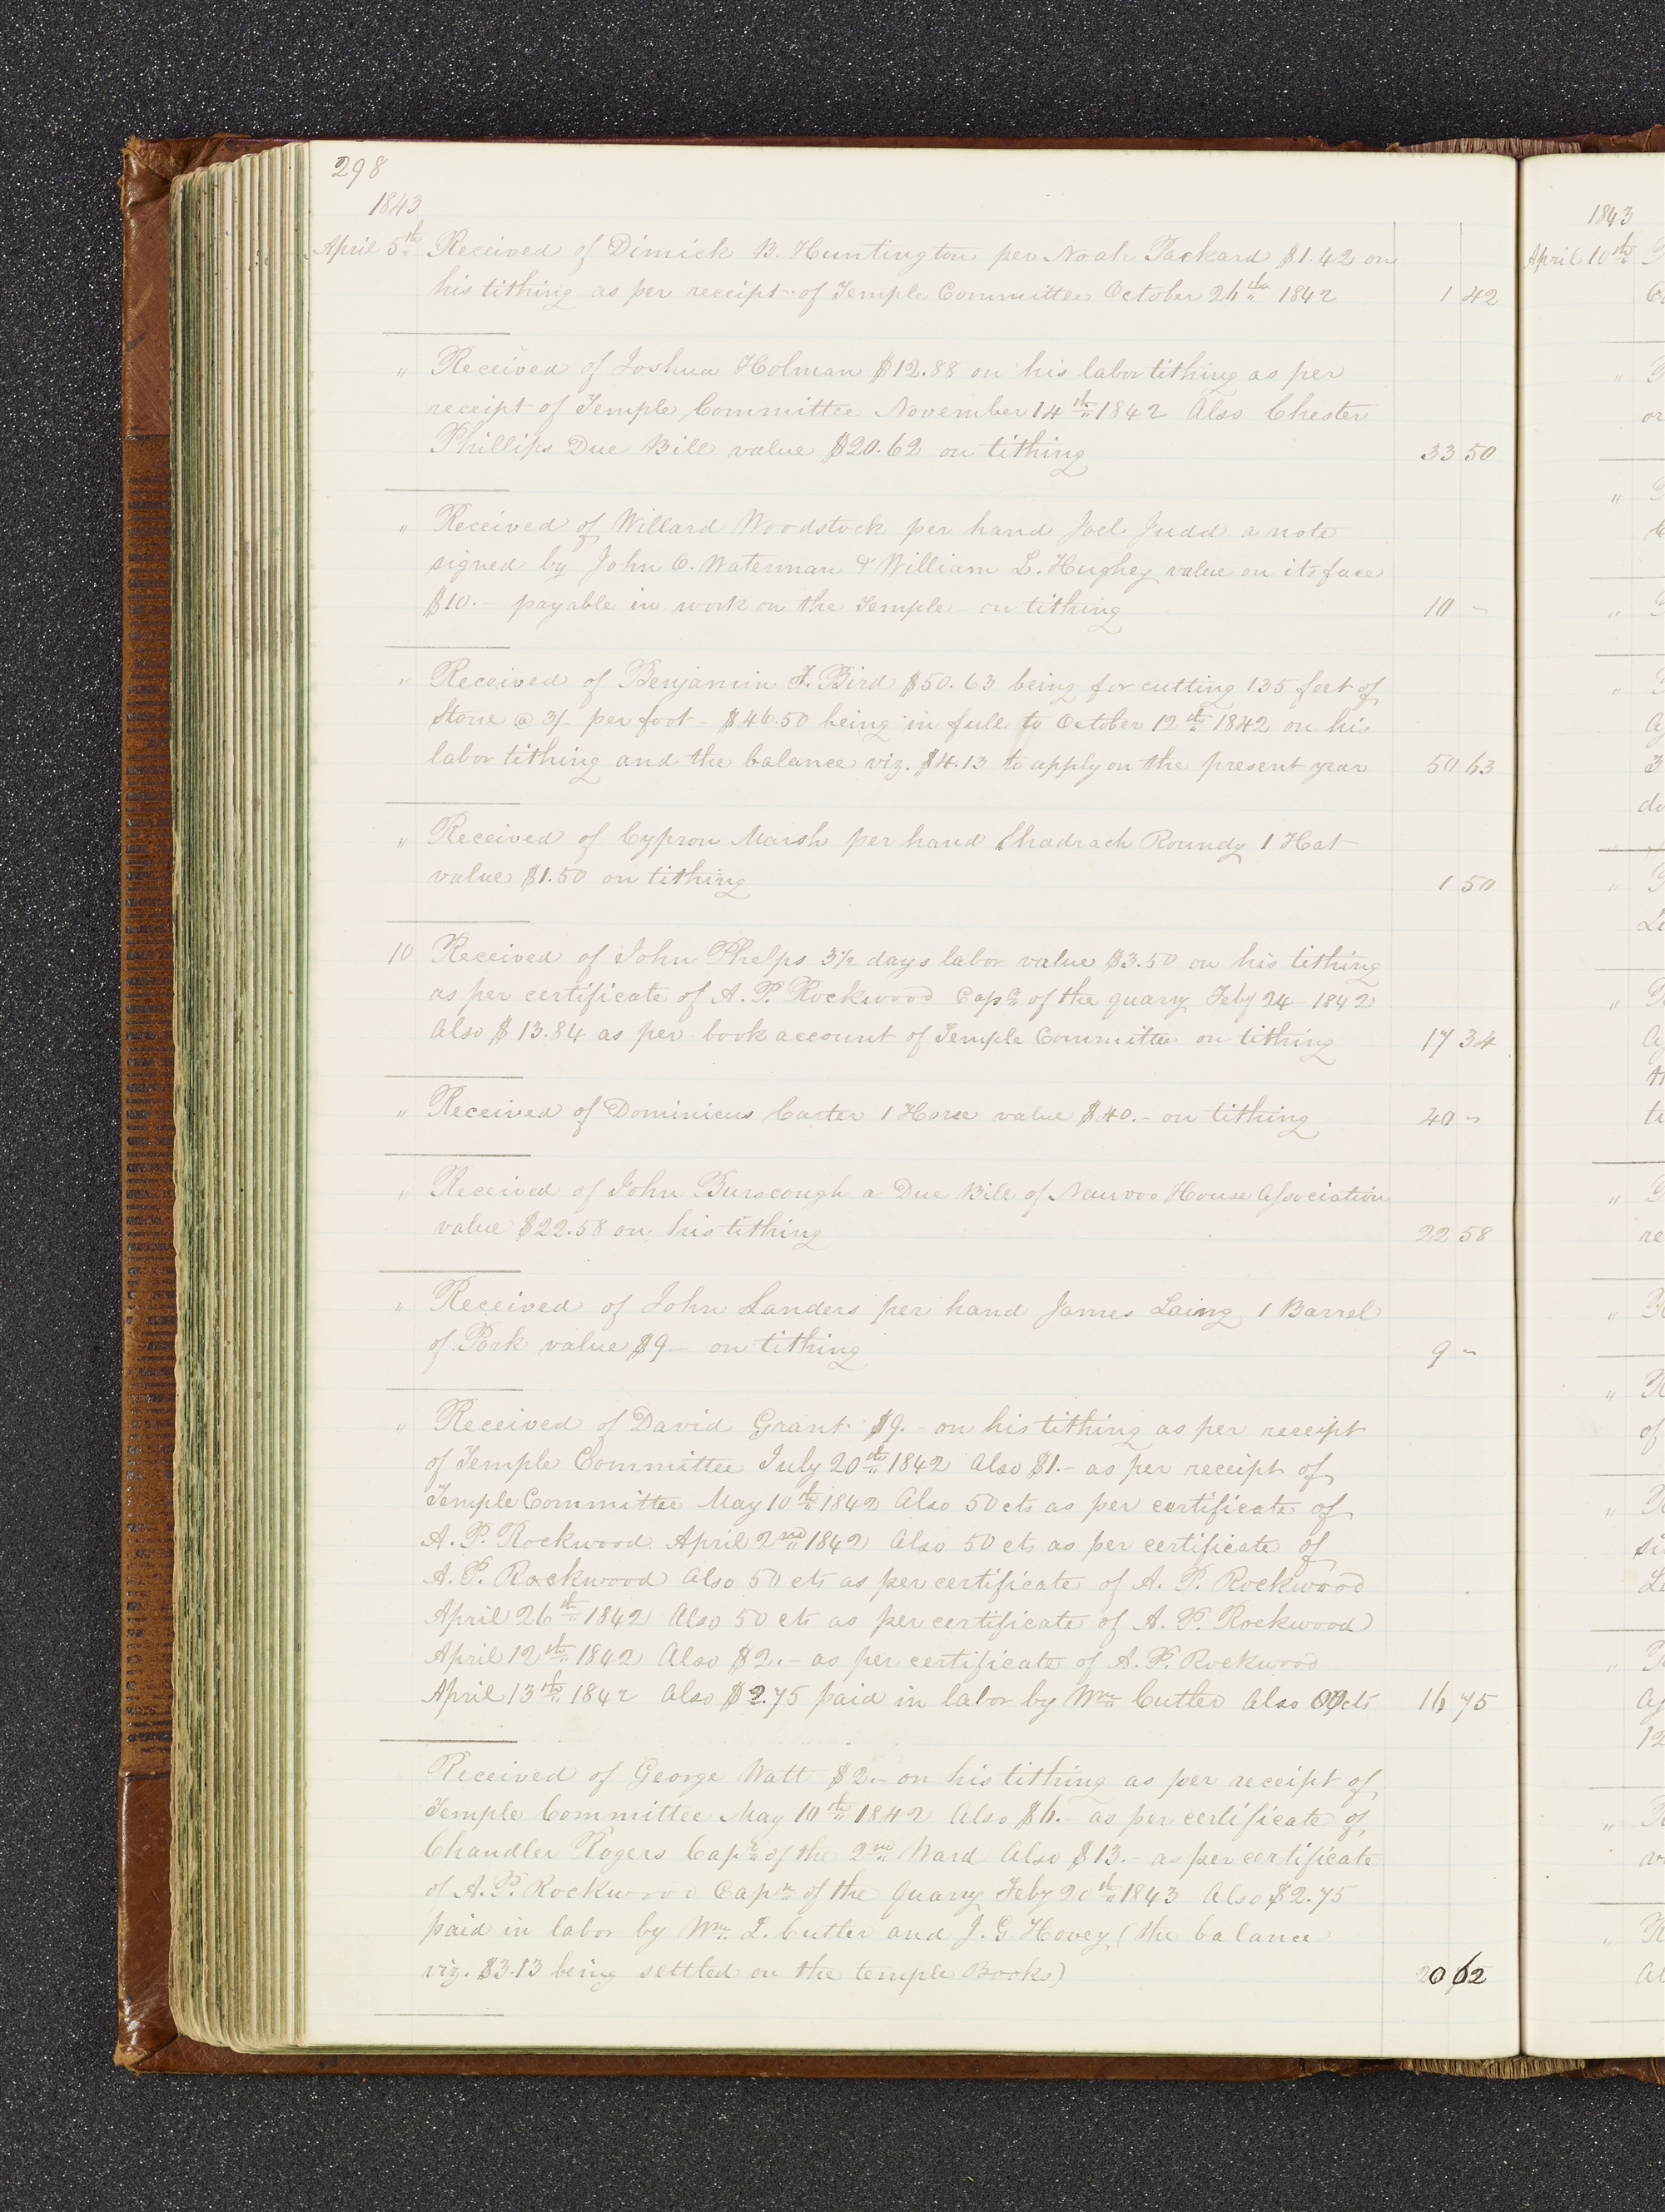 298
1843
April 5th Received of Dimick B. Huntington per Noah Packard $1.42 on
his tithing as per receipt of Temple Committee October 26th 1842 1 42
" Received of Joshua Holman $12.88 on his labor tithing as per
receipt of Temple Committee November 14th 1842 Also Chester
Phillips Due Bill value $20.62 on tithing 33 50
" Received of Willard Woodstock per hand Joel Judd a note
signed by John O. Waterman & William L. Hughey value on its face
$10.- payable in work on the Temple on tithing 10 -
" Received of Benjamin F. Bird $50.63 being for cutting 135 feet of
Stone @ 3/- per foot - $46.50 being in full to October 12th 1842 on his
labor tithing and the balance viz. $4.13 to apply on the present year 50 63
" Received of Cypron Marsh per hand Shadrach Roundy 1 Hat
value $1.50 on tithing 1 50
10 Received of John Phelps 3 1/2 days labor value $3.50 on his tithing
as per certificate of A. P. Rockwood Capn of the quarry Feby 24 1842
Also $13.84 as per book account of Temple Committee on tithing 17 34
" Received of Dominicus Carter 1 Horse value $40.- on tithing 40 -
" Received of John Burscough a Due Bill of Nauvoo House Association
value $22.58 on his tithing 22 58
" Received of John Landers per hand James Laing 1 Barrel
of Pork value $9.- on tithing 9 -
" Received of David Grant $9.- on his tithing as per receipt
of Temple Committee July 20th 1842 Also $1.- as per receipt of
Temple Committee May 10th 1842 Also 50 cts as per certificate of
A. P. Rockwood April 2nd 1842 Also 50 cts as per certificate of
A. P. Rockwood Also 50 cts as per certificate of A. P. Rockwood
April 26th 1842 Also 50 cts as per certificate of A. P. Rockwood
April 12th 1842 Also $2.- as per certificate of A. P. Rockwood
April 13th 1842 Also $2.75 paid in labor by Wm Cutler Also cts 16 75
Received of George Watt $2.- on his tithing as per receipt of
Temple Committee May 10th 1842 Also $6.- as per certificate of
Chandler Rogers Capn of the 2nd Ward Also $13.- as per certificate
of A. P. Rockwood Capn of the Quarry Feby 20th 1843 Also $2.75
paid in labor by Wm L. Cutler and J. G. Hovey (the balance
viz. $3.13 being settled on the temple Books) 20 62
1843
April 10th